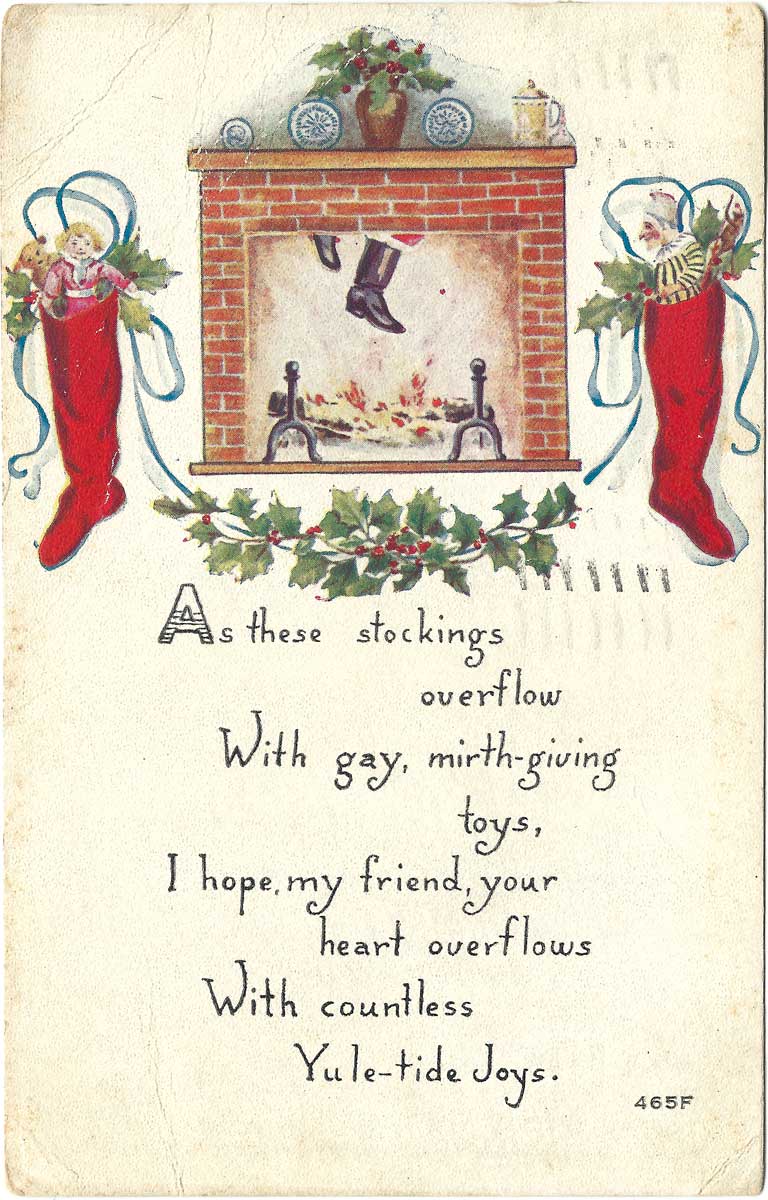 As these stockings
overflow
With gay, mirth-giving
toys,
I hope, my friend, your
heart overflows
With countless
Yule-tide Joys.
465F